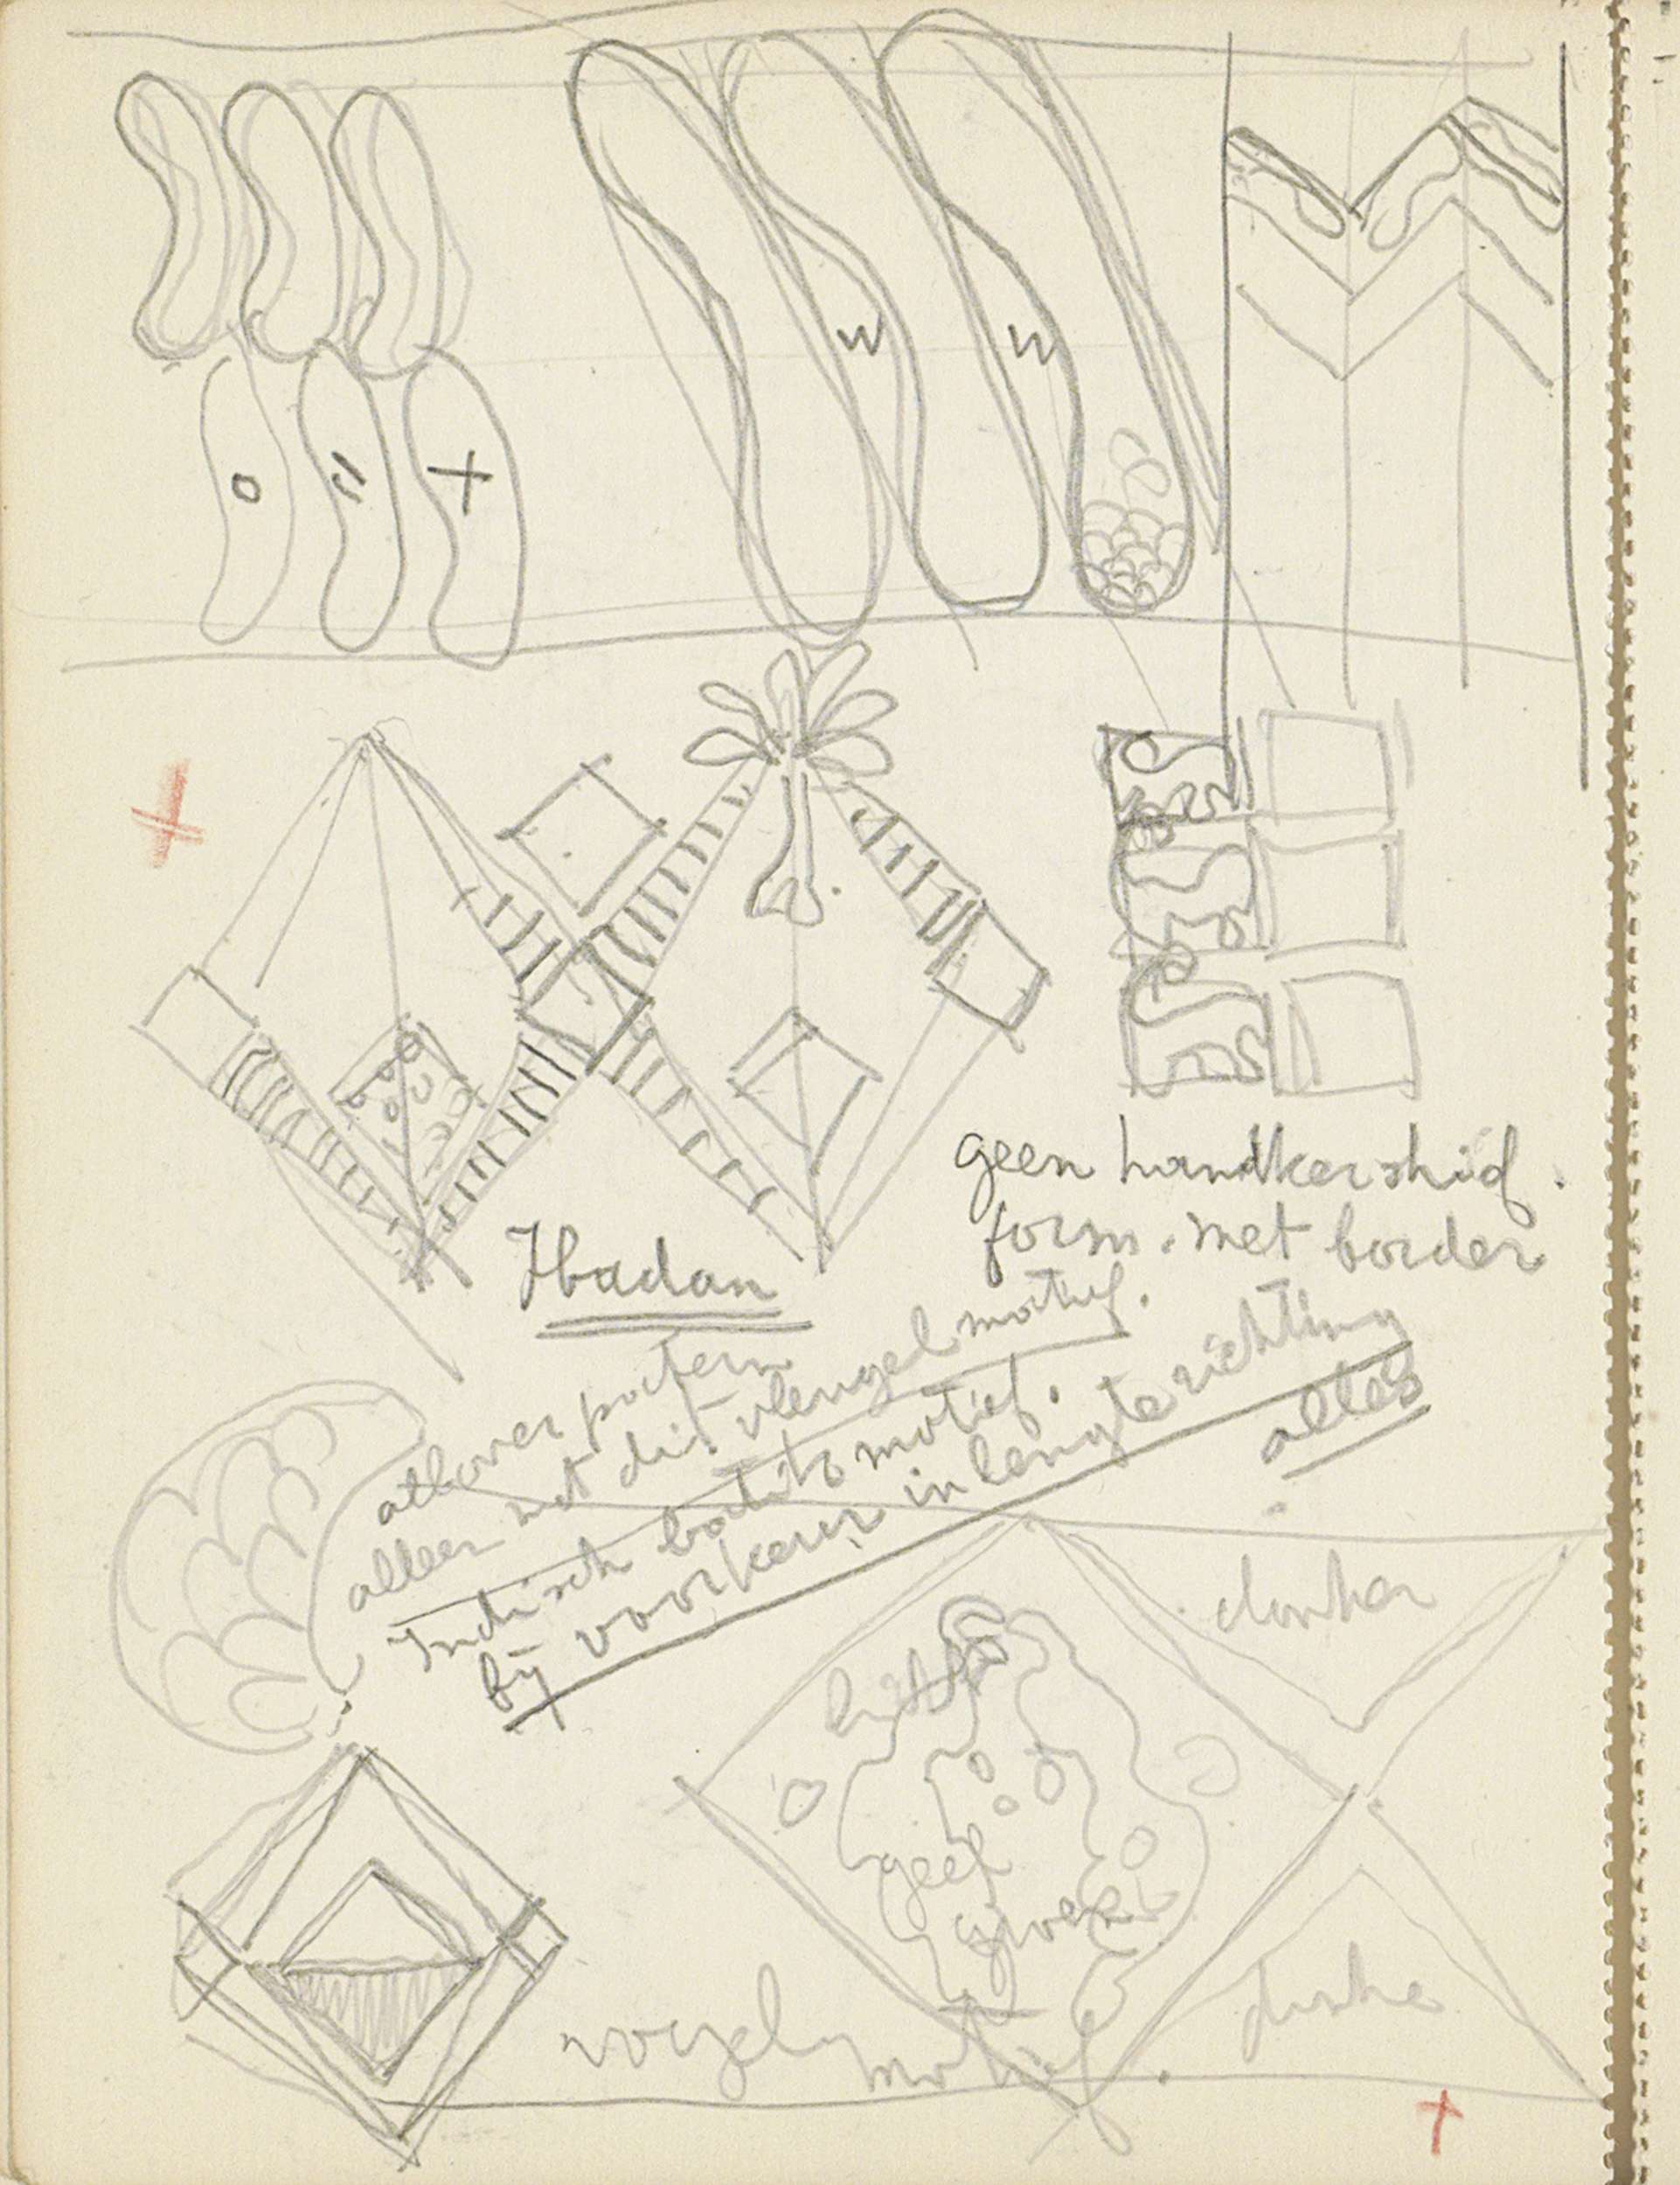 o " X
w w
geen handkershief.
form. met border
Ibadan
allover pattern
alleen met dit vleugel motief.
Indisch batiks motief.
bij voorkeur in lengte richting
alles
donker
licht
geel
donke
motief